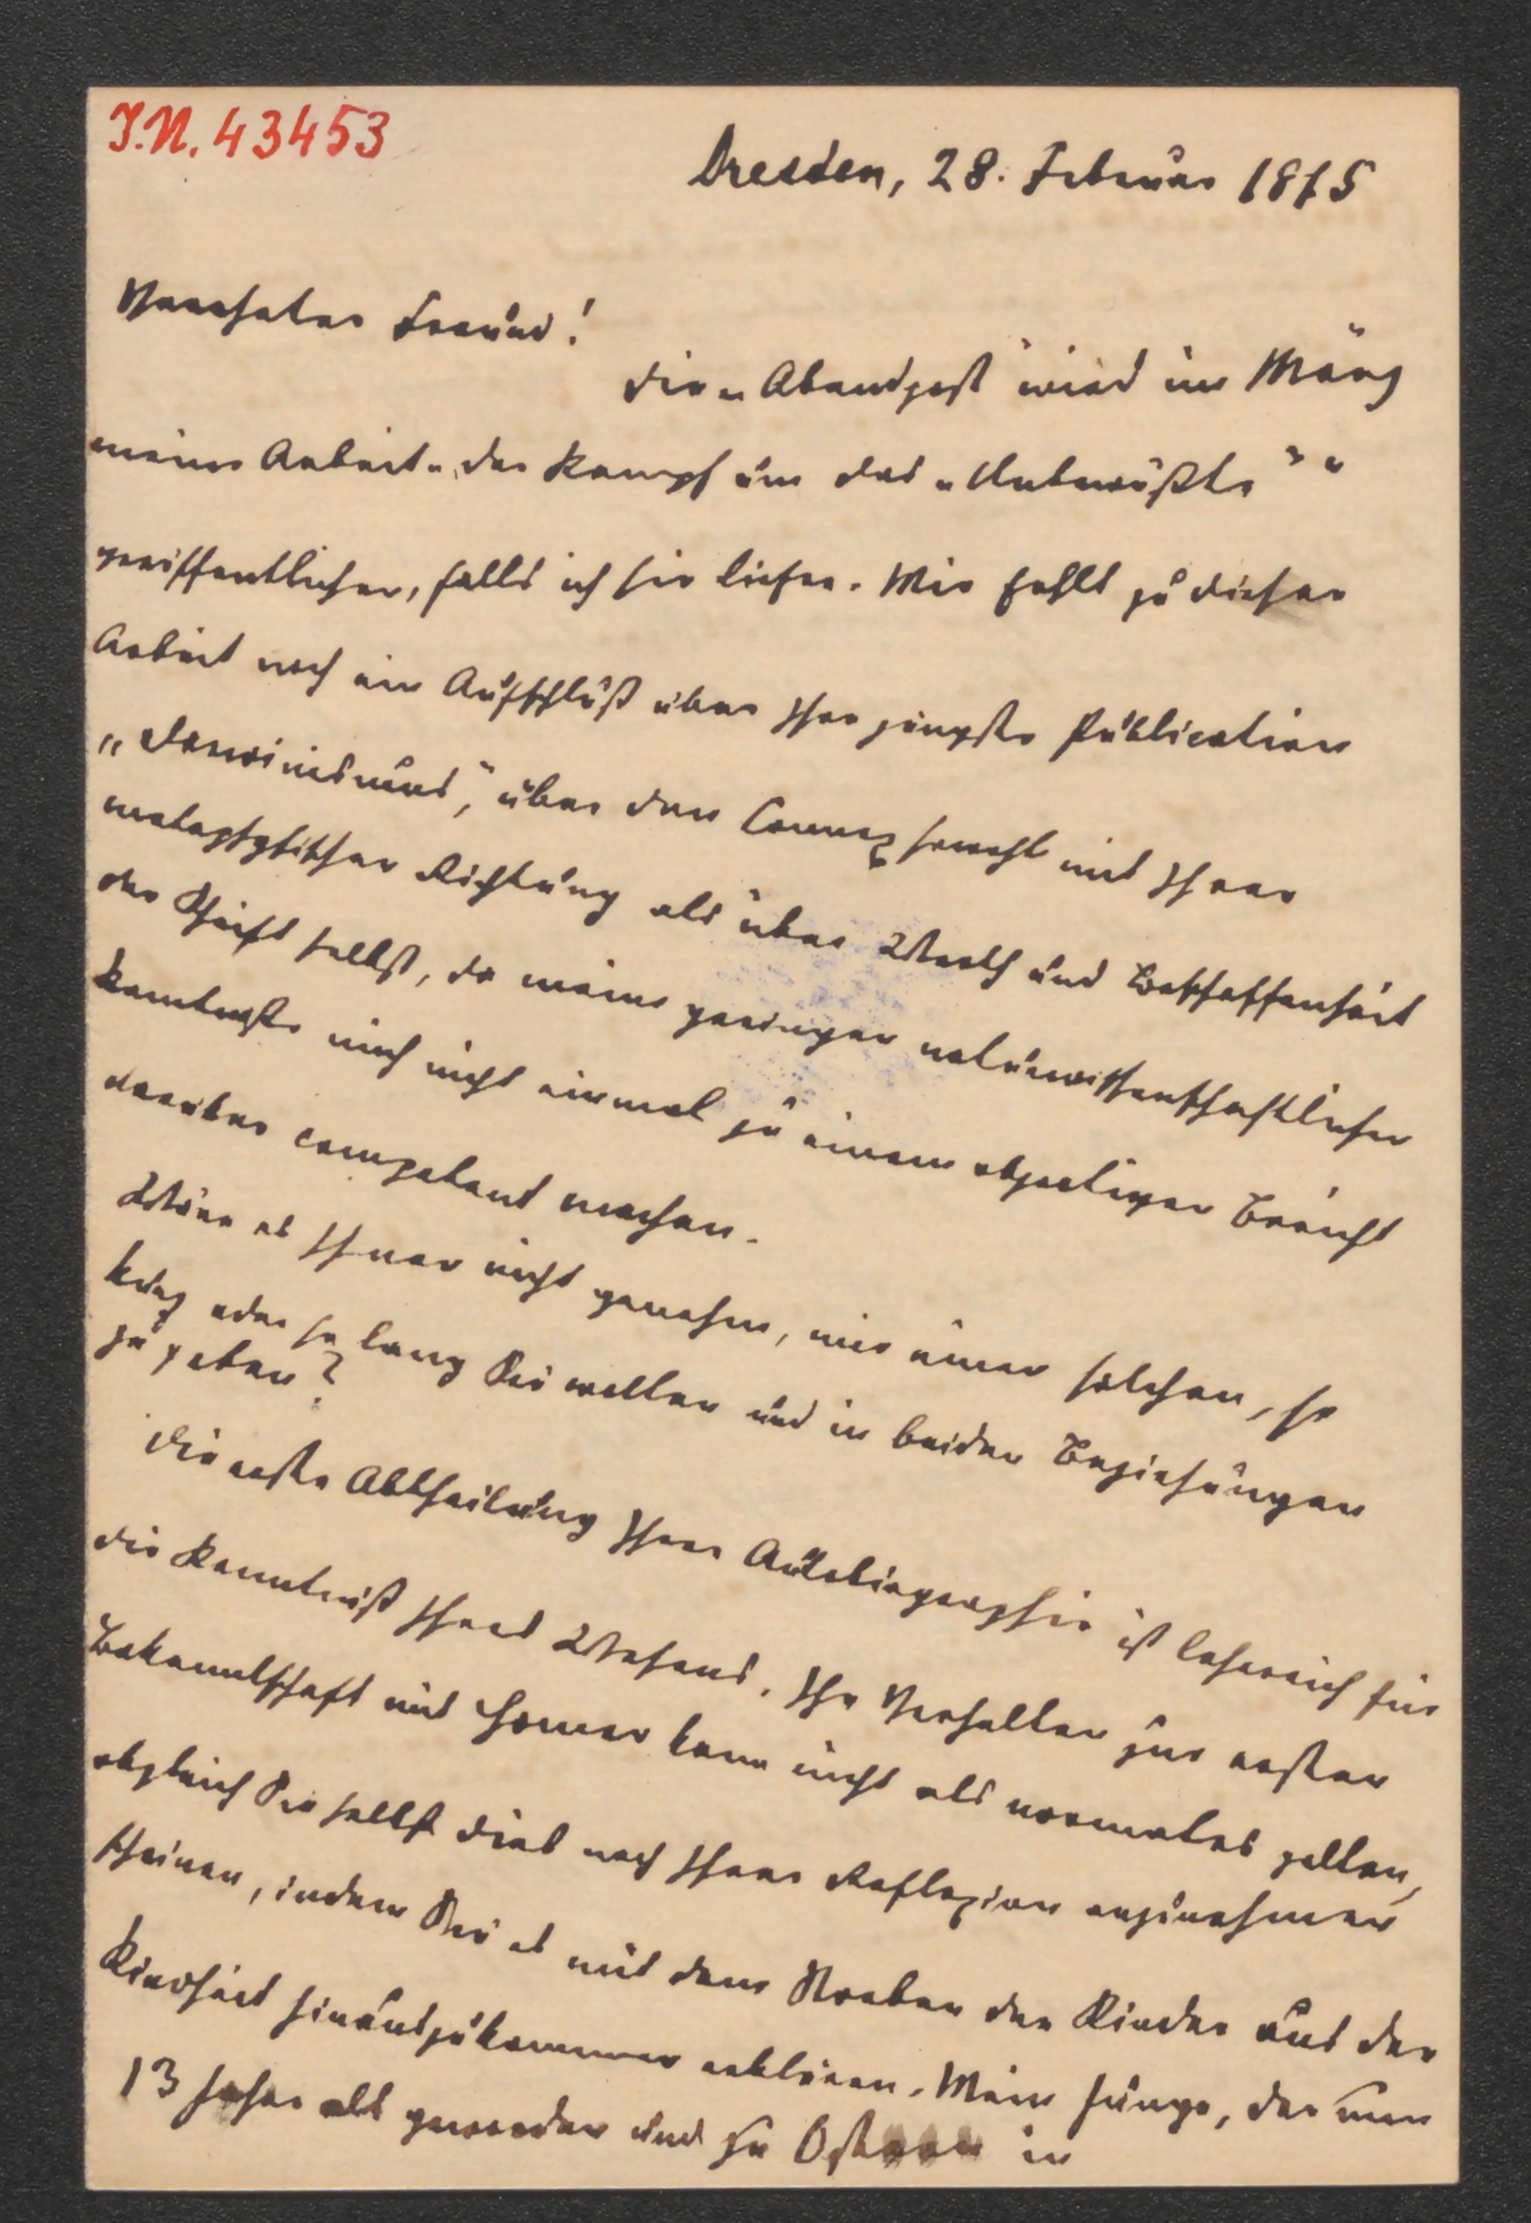 J.N. 43453
Dresden, 28. Februar 1875
Verehrter Freund!
Die „Abendpost" wird im März
meine Arbeit „der Kampf um das „Unbewußte" "
veröffentlichen, falls ich sie liefere. Mir fehlt zu dieser
Arbeit noch ein Aufschluß über Ihre jüngste Publication
„Darwinismus", über den Connex sowohl mit Ihrer
metaphysischen Richtung als über Werth und Beschaffenheit
der Schrift selbst, da meine geringen naturwissenschaftlichen
Kenntnisse mich nicht einmal zu einem objectiven Bericht
darüber competent machen.
Wäre es Ihnen nicht genehm, mir einen solchen, so
kurz oder so lang Sie wollen und in beiden Beziehungen
zu geben?
Die erste Abtheilung Ihrer Autobiographie ist lehrreich für
die Kenntniß Ihres Wesens. Ihr Verhalten zur ersten
Bekanntschaft mit Homer kann nicht als normales gelten,
obgleich Sie selbst dies nach Ihrer Reflexion anzunehmen
scheinen, indem Sie es mit dem Streben der Kinder aus der
Kindheit hinauszukommen erklären. Mein Junge, der nun
13 Jahre alt geworden und zu Ostern in